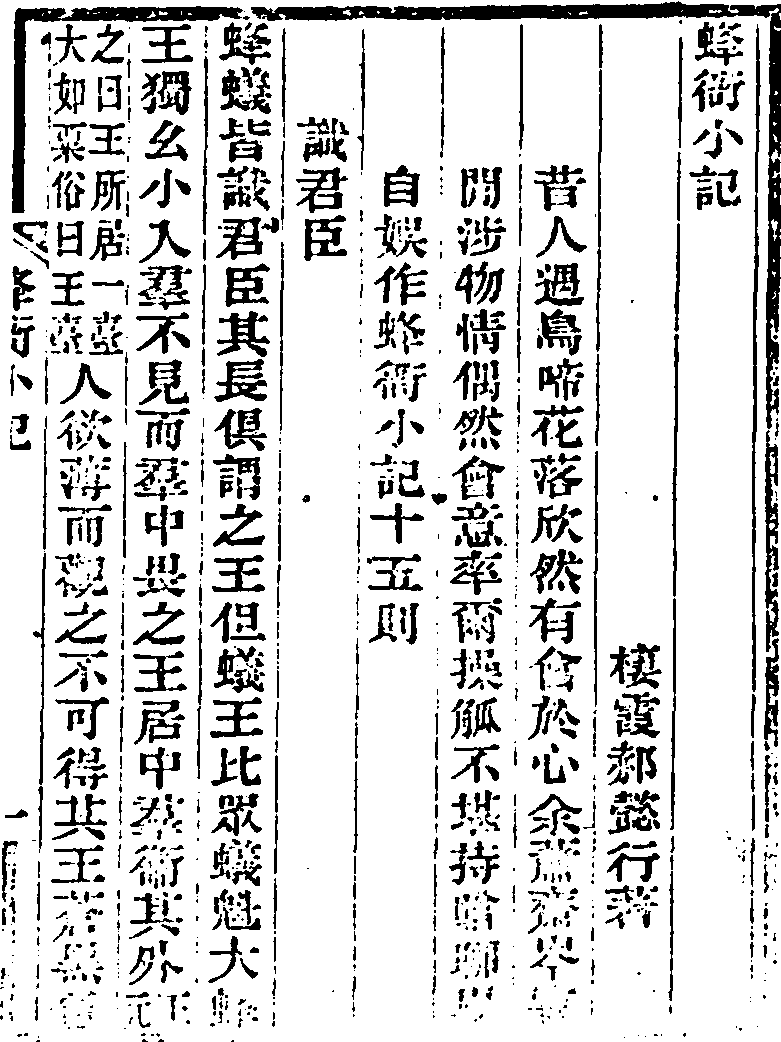 蜂衙小記
棲霞郝懿行著
昔人遇鳥啼花落欣然有會於心余蕭齋岑
閒涉物情偶然會意率爾操觚不堪持贈聊以
自娛作蜂衙小記十五則
識君臣
蜂蟻皆識君臣其長俱謂之王但蟻王比眾蟻魁大蜂
王獨幺小入羣不見而羣中畏之王居中羣衛其外王元
之曰王所居一臺大如栗俗曰王臺人欲薄而觀之不可得其王蒼黑
蜂衙小記
一